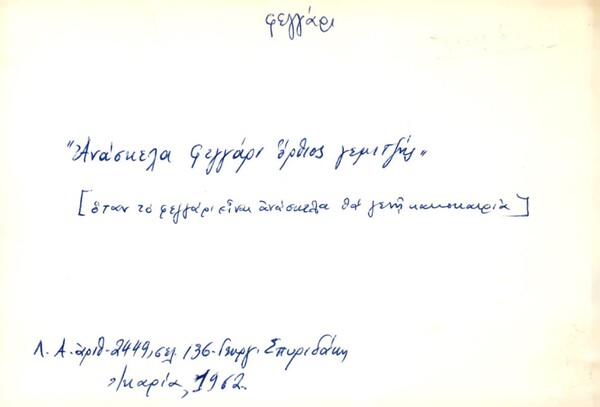 φεγγάρι
"Ἀνάσκελα φεγγάρι ὄρθιος γεμιτζής"
[ὅταν τὸ φεγγάρι εἶναι ἀνάσκελα θὰ γενῇ κακοκαιρία]
Λ. Α. ἀριθ. 2449, σελ. 136. Γεωργ. Σπυριδάκη
Ἰκαρία, 1962.